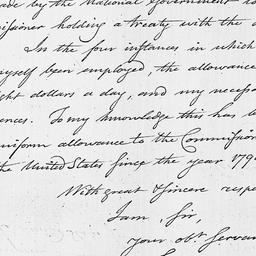 ade by the National Government to
issioner holding a treaty with the
In the four instances in which
myself been employed, the allowance
ight dollars a day, and my necess
ences. To my knowledge this has be
uniform allowance to the Commission
the United States since the year 179
With great & sincere respe
I am, Sir,
your obt. Servan